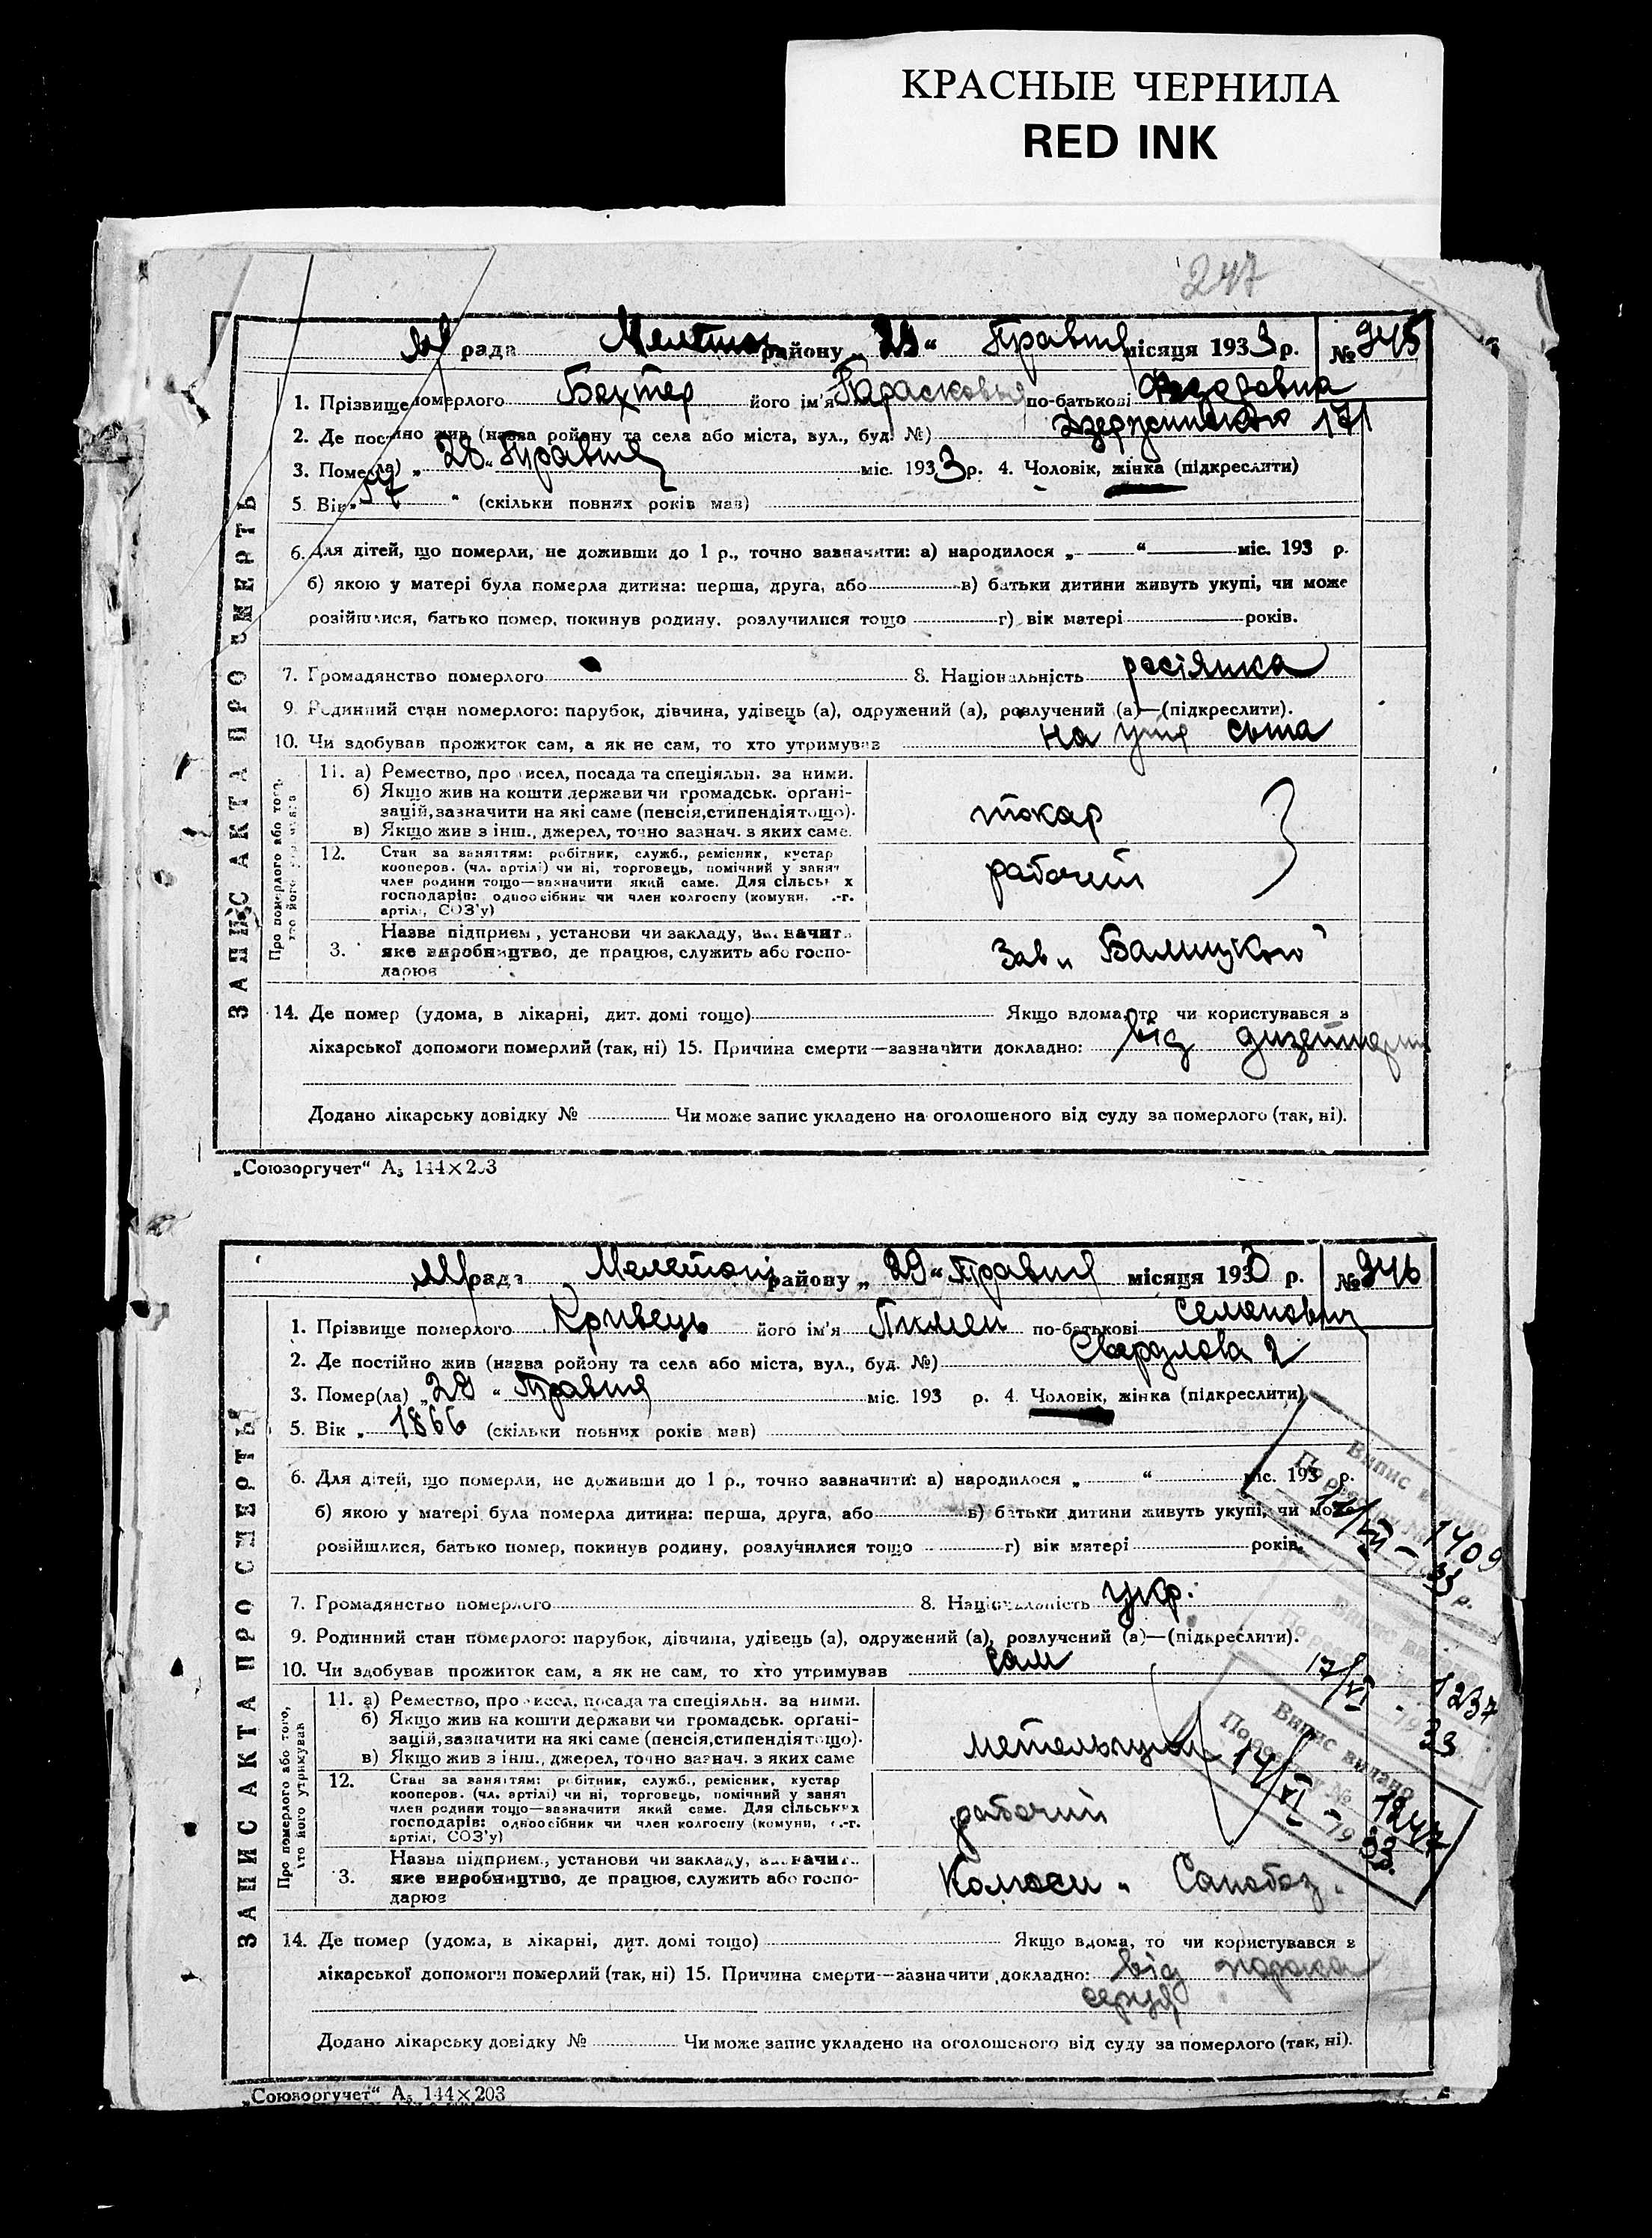 КРАСНЫЕ ЧЕРНИЛА
RED INK
247
рада Мелітоп району „29“ Травня місяця 1933 р. № 945
1. Прізвище померлого Бехтер його ім'я Парасковья по-батькові Федоровна
2. Де постійно жив (назва району та села або міста, вул., буд. №) 171
3. Помер(ла) „28“ Травня міс. 1933 р. 4. Чоловік, жінка (підкреслити)
5. Вік „ “ (скільки повних років мав)
6. Для дітей, що померли, не доживши до 1 р., точно зазначити: а) народилося „ “ міс. 193 р.
б) якою у матері була померла дитина: перша, друга, або в) батьки дитини живуть укупі, чи може
розійшлися, батько помер, покинув родину, розлучилися тощо г) вік матері років.
7. Громадянство померлого 8. Національність росіянка
9. Родинний стан померлого: парубок, дівчина, удівець (а), одружений (а), розлучений (а)—(підкреслити).
10. Чи здобував прожиток сам, а як не сам, то хто утримував на утр сына
ЗАПИС АКТА ПРО СМЕРТЬ
Про померлого або того,
хто його утримував
11. а) Ремество, промисел, посада та спеціяльн. за ними.
б) Якщо жив на кошти держави чи громадськ. органі-
зацій, зазначити на які саме (пенсія, стипендія тощо).
в) Якщо жив з інш., джерел, точно зазнач. з яких саме.
токар
12. Стан за заняттям: робітник, служб., ремісник, кустар
кооперов. (чл. артілі) чи ні, торговець, помічний у занят
член родини тощо—зазначити який саме. Для сільськ х
господарів: одноосібник чи член колгоспу (комуни, .-г.
артілі, СОЗ'у)
рабочий
3. Назва підприєм., установи чи закладу, зазначить
яке виробництво, де працює, служить або госпо-
дарює
Зав „Балицкого“
14. Де помер (удома, в лікарні, дит. домі тощо) Якщо вдома, то чи користувався з
лікарської допомоги померлий (так, ні) 15. Причина смерти—зазначити докладно: від дизентерии
Додано лікарську довідку № Чи може запис укладено на оголошеного від суду за померлого (так, ні).
„Союзоргучет“ А₅ 144×203
рада Мелетоп району „29“ Травня місяця 1933 р. № 946
1. Прізвище померлого Кривець його ім'я Пимен по-батькові Семенович
2. Де постійно жив (назва району та села або міста, вул., буд. №) Свердлова 2
3. Помер(ла) „28“ Травня міс. 193 р. 4. Чоловік, жінка (підкреслити)
5. Вік „ 1866 (скільки повних років мав)
6. Для дітей, що померли, не доживши до 1 р., точно зазначити: а) народилося „ “ міс. 193 р.
б) якою у матері була померла дитина: перша, друга, або в) батьки дитини живуть укупі, чи може
розійшлися, батько помер, покинув родину, розлучилися тощо г) вік матері років.
Випис видано
По реєстру № 1409
33 р.
7. Громадянство померлого 8. Національність укр.
9. Родинний стан померлого: парубок, дівчина, удівець (а), одружений (а), розлучений (а)—(підкреслити).
10. Чи здобував прожиток сам, а як не сам, то хто утримував сам
Випис видано
По реєстру № 1237
17/VI - 1933
ЗАПИС АКТА ПРО СМЕРТЬ
Про померлого або того,
хто його утримував
11. а) Ремество, промисел, посада та спеціяльн. за ними.
б) Якщо жив на кошти держави чи громадськ. органі-
зацій, зазначити на які саме (пенсія, стипендія тощо).
в) Якщо жив з інш., джерел, точно зазнач. з яких саме
метельщик
Випис видано
По реєстру № 1247
14/VI - 1933
12. Стан за заняттям: робітник, служб., ремісник, кустар
кооперов. (чл. артілі) чи ні, торговець, помічний у занят
член родини тощо—зазначити який саме. Для сільських
господарів: одноосібник чи член колгоспу (комуни, с.-г.
артілі, СОЗ'у)
рабочий
3. Назва підприєм., установи чи закладу, зазначить
яке виробництво, де працює, служить або госпо-
дарює
14. Де помер (удома, в лікарні, дит. домі тощо) Якщо вдома, то чи користувався з
лікарської допомоги померлий (так, ні) 15. Причина смерти—зазначити докладно: від порока
серця
Додано лікарську довідку № Чи може запис укладено на оголошеного від суду за померлого (так, ні).
„Союзоргучет“ А₅ 144×203